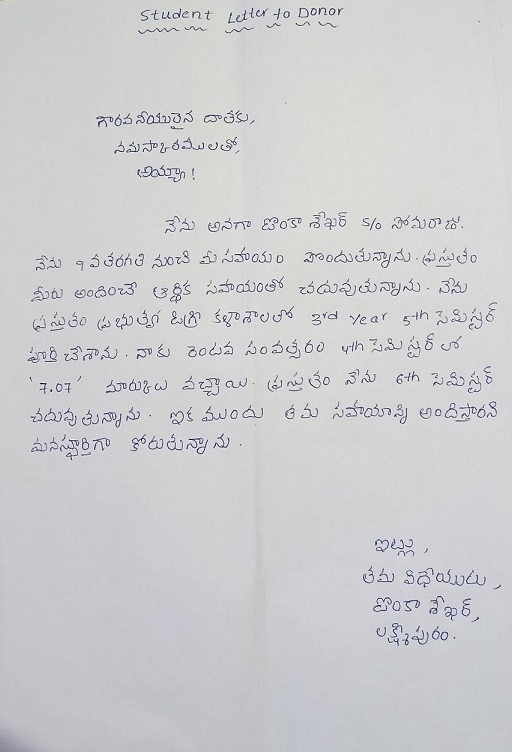 Student Letter to Donor
గౌరవనీయులైన దాతకు,
నమస్కారములతో,
అయ్యా!
నేను అనగా టొంకా శేఖర్ S/o సోమరాజు.
నేను 9 వతరగతి నుంచి మీ సహాయం పొందుతున్నాను. ప్రస్తుతం
మీరు అందించే ఆర్థిక సహాయంతో చదువుతున్నాను. నేను
ప్రస్తుతం ప్రభుత్వ డిగ్రి కళాశాలలో 3rd Year 5th సెమిస్టర్
పూర్తి చేశాను. నాకు రెండవ సంవత్సరం 4th సెమిస్టర్ లో
'7.07' మార్కులు వచ్చాయి. ప్రస్తుతం నేను 6th సెమిస్టర్
చదువుతున్నాను. ఇక ముందు తమ సహాయాన్ని అందిస్తారని
మనస్ఫూర్తిగా కోరుతున్నాను.
ఇట్లు,
తమ విధేయుడు,
టొంకా శేఖర్,
లక్ష్మీపురం.